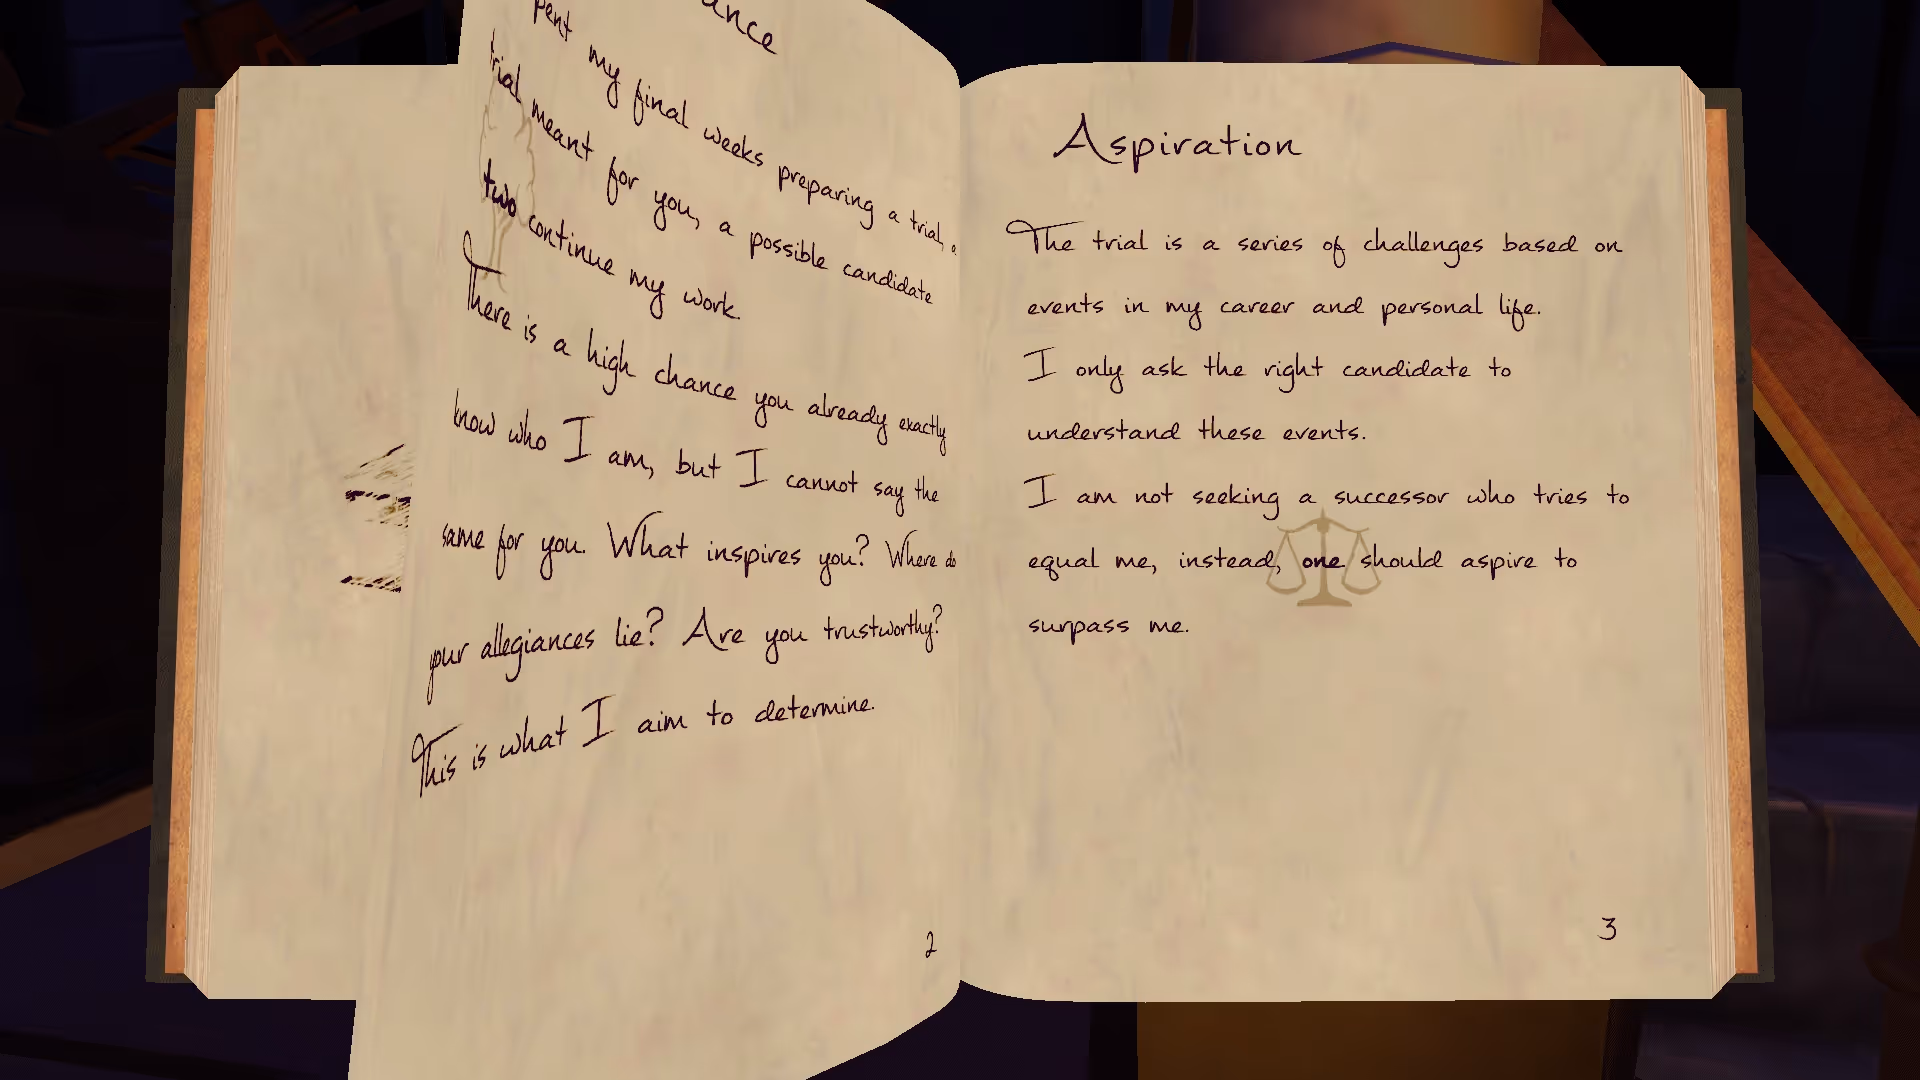 ance
pent my final weeks preparing a trial, a
trial meant for you, a possible candidate
two continue my work.
There is a high chance you already exactly
know who I am, but I cannot say the
same for you. What inspires you? Where do
your allegiances lie? Are you trustworthy?
This is what I aim to determine.
2
Aspiration
The trial is a series of challenges based on
events in my career and personal life.
I only ask the right candidate to
understand these events.
I am not seeking a successor who tries to
equal me, instead, one should aspire to
surpass me.
3